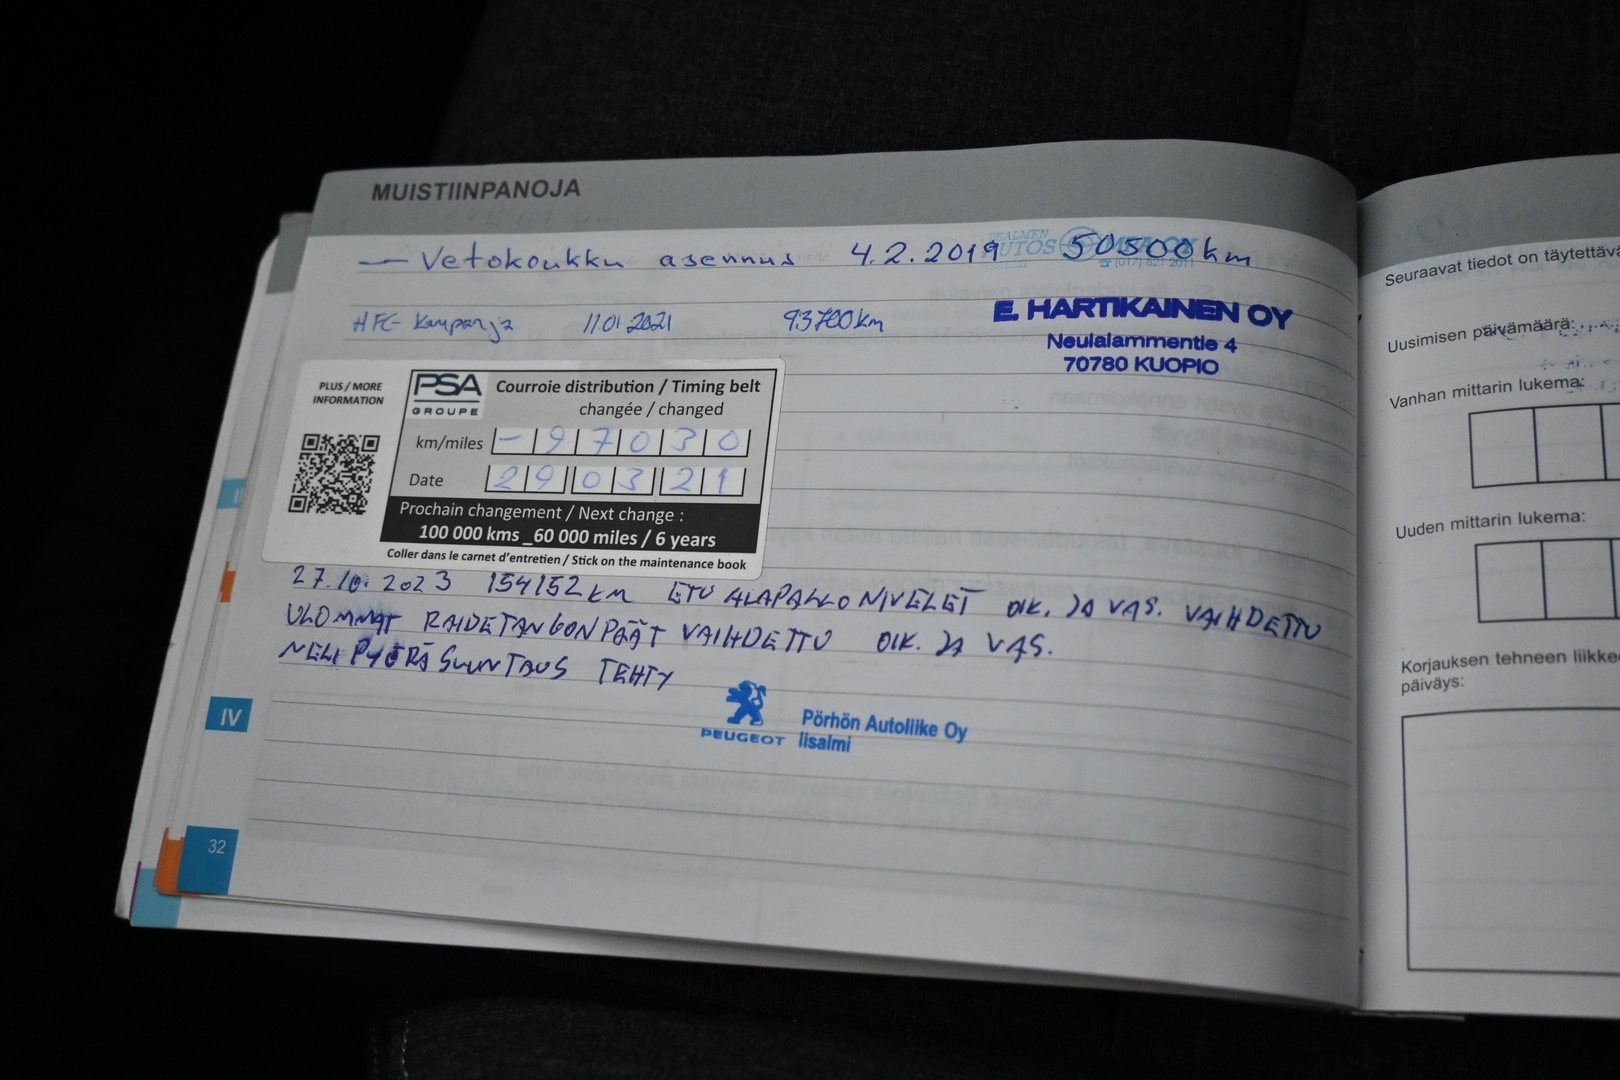 MUISTIINPANOJA
— Vetokoukku asennus 4.2.2019 50500 km
IISALMEN
AUTOS
HFC- Kampanja 11.01.2021 93700km
E. HARTIKAINEN OY
Neulalammentie 4
70780 KUOPIO
PLUS / MORE
INFORMATION
PSA
GROUPE
Courroie distribution / Timing belt
changée / changed
km/miles - 9 7 0 3 0
Date 2 9 0 3 2 1
Prochain changement / Next change :
100 000 kms _60 000 miles / 6 years
Coller dans le carnet d'entretien / Stick on the maintenance book
27.10.2023 154152 KM ETU ALAPALLONIVELET OIK. JA VAS. VAIHDETTU
ULOMMAT RAIDETANGONPÄÄT VAIHDETTU OIK. JA VAS.
NELIPYÖRÄSUUNTAUS TEHTY
PEUGEOT
Pörhön Autoliike Oy
Iisalmi
IV
32
Seuraavat tiedot on täytettävä
Uusimisen päivämäärä:
Vanhan mittarin lukema:
Uuden mittarin lukema:
Korjauksen tehneen liikke
päiväys: